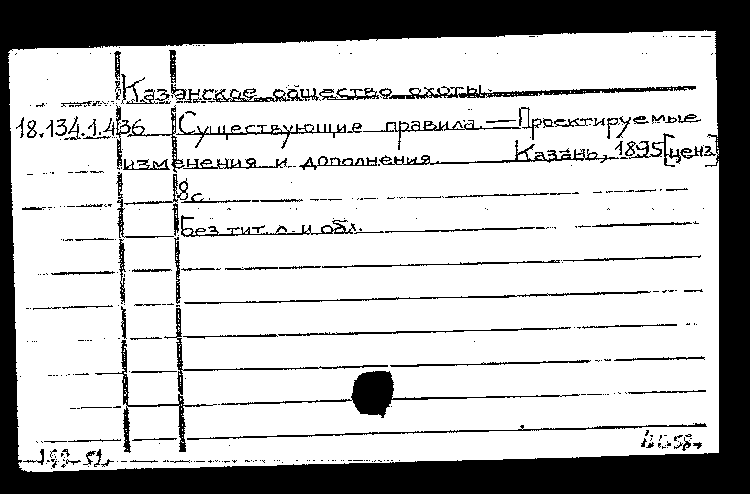 Казанское общество охоты.
18.134.1.436 Существующие правила. — Проектируемые
изменения и дополнения. Казань, 1895 [ценз]
8с.
Без тит. л. и обл.